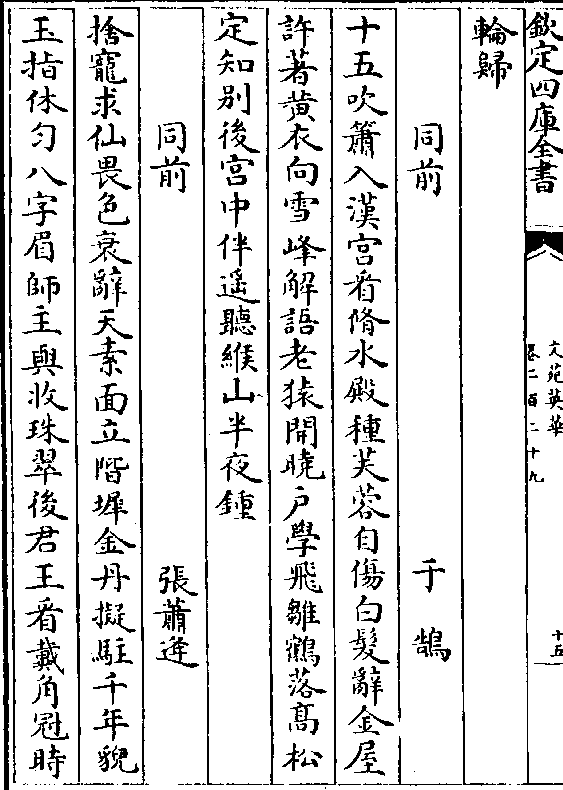 欽定四庫全書
文苑英華
卷二百二十九
十五
輪歸
同前 于鵠
十五吹簫入漢宮看脩水殿種芙蓉自傷白髮辭金屋
許著黄衣向雪峰解語老猿開曉户學飛雛鶴落髙松
定知别後宮中伴遥聽緱山半夜鍾
同前 張蕭逺
捨寵求仙畏色衰辭天素面立階墀金丹擬駐千年貌
玉指休匀八字眉師主與收珠翠後君王看戴角冠時